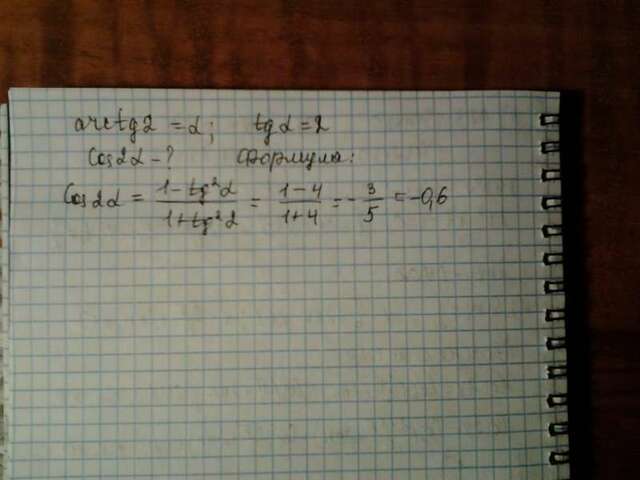 arctg2 = α; tgα = 2
Cos2α - ? Формула:
Cos2α = (1 - tg²α)/(1 + tg²α) = (1 - 4)/(1 + 4) = - 3/5 = -0,6